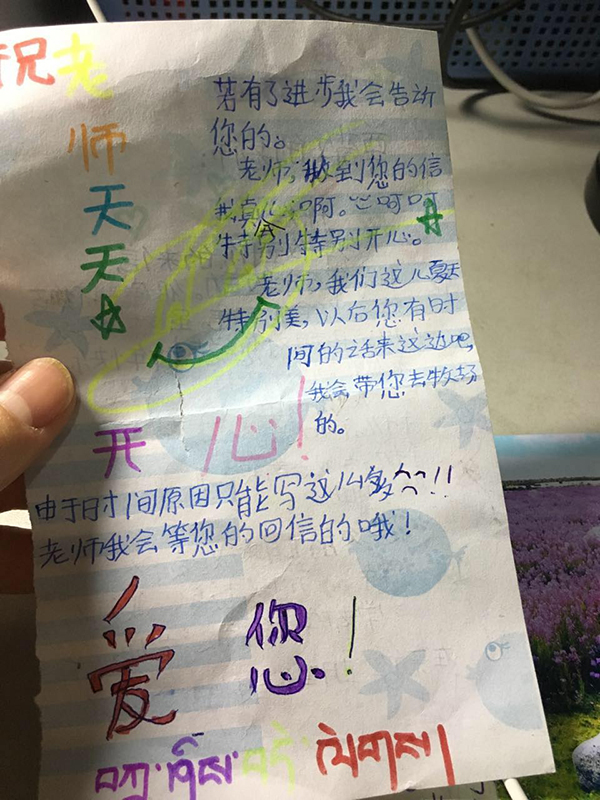 祝老
师
天
天
开心!
若有了进步我会告诉
您的。
老师,收到您的信
我真心 啊。 呵呵
特别特别开心。
老师,我们这儿夏天
特别美,以后您有时
间的话来这边吧,
我会带您去牧场
的。
由于时间原因只能写这么多^^!!
老师我会等您的回信的哦!
爱您!
བཀྲ་ཤིས་བདེ་ལེགས།